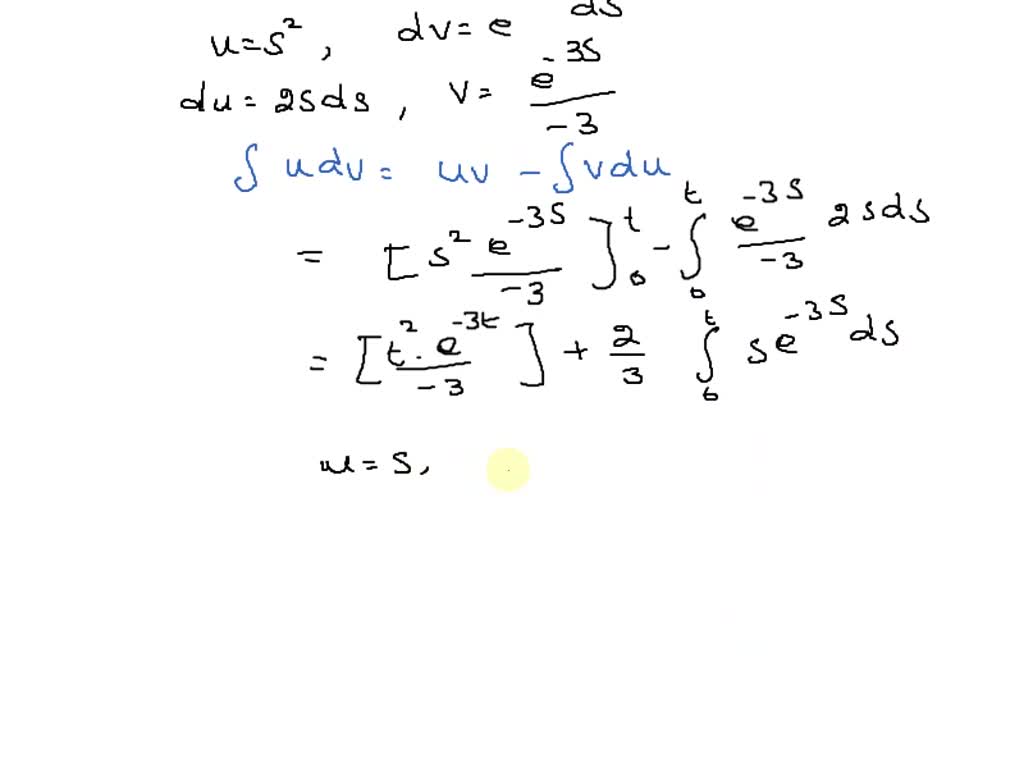 u = s², dv = e ds
du = 2sds, v = e^{-3s}/-3
∫ u dv = uv - ∫ v du
= [s² e^{-3s}/-3]₀ᵗ - ∫₀ᵗ e^{-3s}/-3 2sds
= [t² · e^{-3t}/-3] + 2/3 ∫₀ᵗ s e^{-3s} ds
u = s,